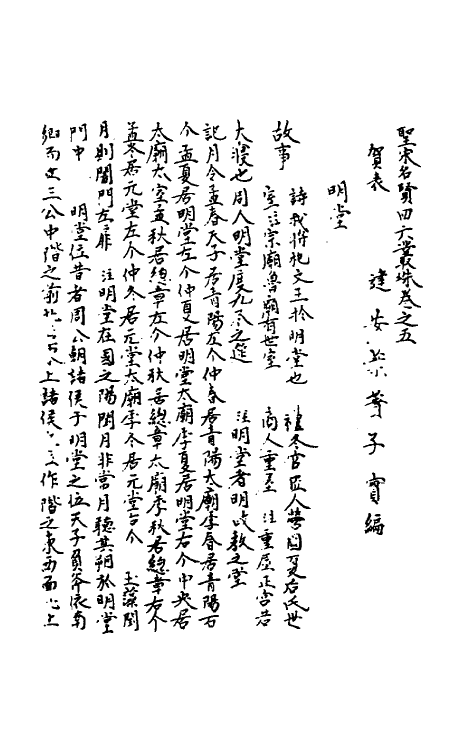 聖宋名賢四六叢珠卷之五
賀表　建安葉蕡子實編
明堂
故事　詩我將祀文王於明堂也　禮冬官匠人營国夏后氏世
室注宗廟魯廟有世室　商人重屋　注重屋正宮若
大寢也周人明堂度九尺之筵　注明堂者明政教之堂
記月令孟春天子居青陽左个仲春居青陽太廟季春居青陽右
个孟夏居明堂左个仲夏居明堂太廟季夏居明堂右个中央居
太廟太室孟秋居緫章左个仲秋居緫章太廟季秋居緫章右个
孟冬居元堂左个仲冬居元堂太廟季冬居元堂右个　玉藻閏
月則闔門左扉　注明堂在國之陽閏月非常月聽其朔於明堂
門中　明堂位昔者周公朝諸侯于明堂之位天子負斧依南
鄉而立三公中階之前北面東上諸侯之位阼階之東西面北上